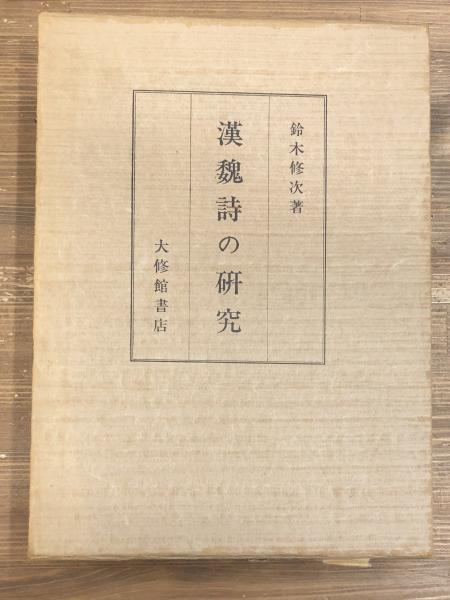 鈴木修次著
漢魏詩の研究
大修館書店